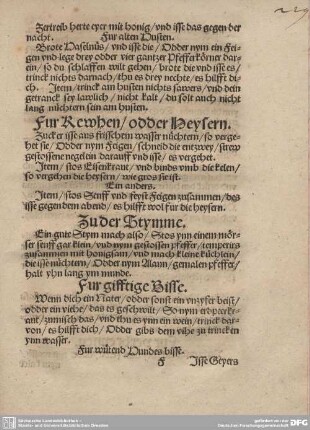 Zerreib herte eyer mit honig/ vnd isse das gegen der
nacht. Fur alten Husten.
Brote Haselnüs/ vnd isse die/ Odder nym ein Fei-
gen vnd lege drey odder vier gantzer Pfefferkörner dar-
ein/ so du schlaffen wilt gehen/ brote die vnd isse es/
trinck nichts darnach/ thu es drey nechte/ es hilfft di-
ch. Item/ trinck am husten nichts sawers/ vnd dein
getranck sey lawlich/ nicht kalt/ du solt auch nicht
lang nüchtern sein am husten.
Fur Kewhen/ odder Heysern.
Zucker isse aus frischem wasser nüchtern/ so verge-
het sie/ Odder nym Feigen/ schneid die entzwey/ strew
gestossene negelein darauff vnd isse/ es vergehet.
Item/ stos Eisenkraut/ vnd binds vmb die kelen/
so vergehen die heysern/ wie gros sie ist.
Ein anders.
Item/ stos Senff vnd feyst Feigen zusammen/ des
isse gegen dem abend/ es hilfft wol für die heysern.
Zu der Stymme.
Ein gute Stym mach also/ Stos ynn einem mör-
ser senff gar klein/ vnd nym gestossen pfeffer/ temperirs
zusammen mit honigsam/ vnd mach kleine küchlein/
die isse nüchtern/ Odder nym Alaun/ gemalen pfeffer/
halt yhn lang ym munde.
Fur gifftige Bisse.
Wenn dich ein Nater/ odder sonst ein vnzyfer beist/
odder ein viehe/ das es geschwilt/ So nym
ant/ zumisch das/ vnd thu es ynn ein wein/ trinck dar-
von/ es hilfft dich/ Odder gibs dem vihe zu trincken
ynn wasser.
Fur wütend Hundes bisse.
F Isse Geyers